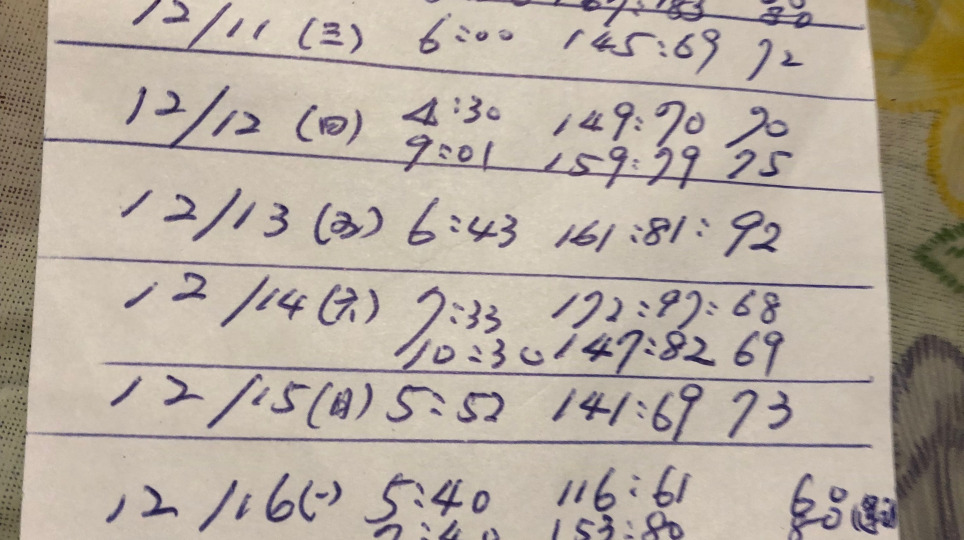 12/11 (三) 6:00 145:69 72
12/12 (四) 4:30 149:70 70
9:01 159:79 75
12/13 (五) 6:43 161:81: 92
12/14 (六) 7:33 172:97: 68
10:30 147:82 69
12/15 (日) 5:52 141:69 73
12/16 (一) 5:40 116:61
153:80